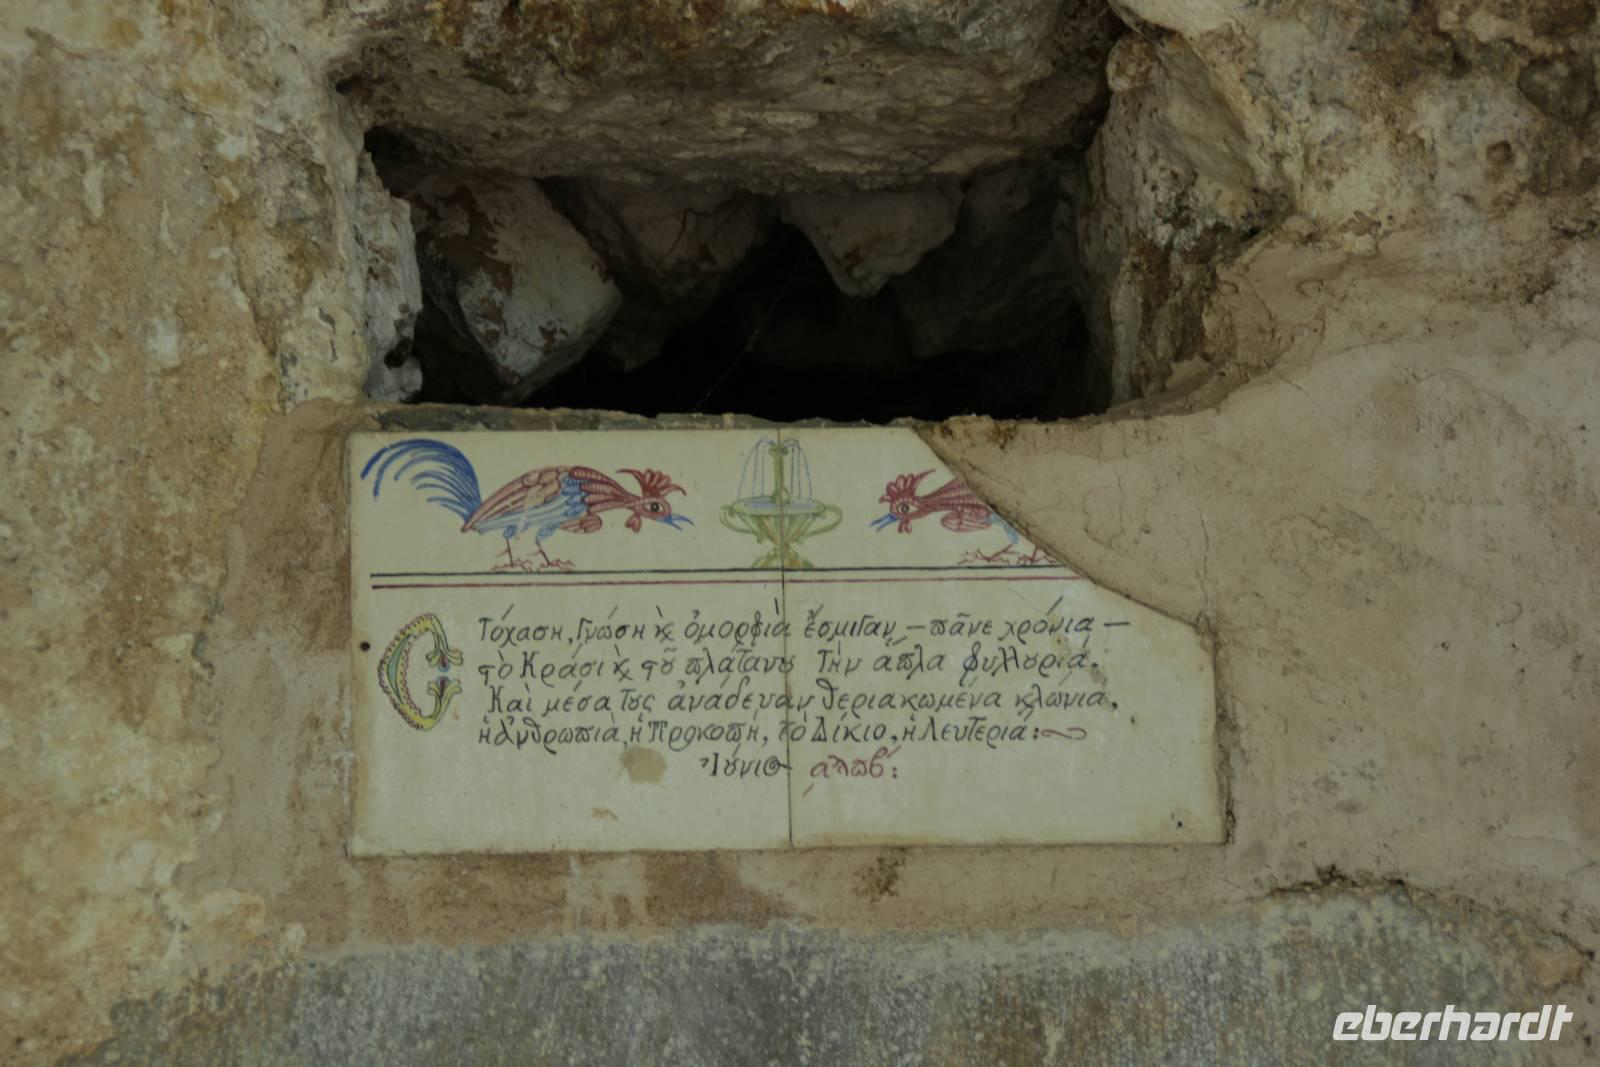 Στόχαση, Γνώση ϗ ὀμορφιὰ ἔσμιγαν – πᾶνε χρόνια –
τὸ Κράσι ϗ τοῦ πλάτανου τὴν ἁπλα φυλλουριά.
Καὶ μέσα τους ἀνάδευαν θεριακωμένα κλώνια,
ἡ ἀνθρωπιὰ, ἡ Προκοπή, τὸ Δίκιο, ἡ Λευτεριά:
Ἰούνιο
eberhardt